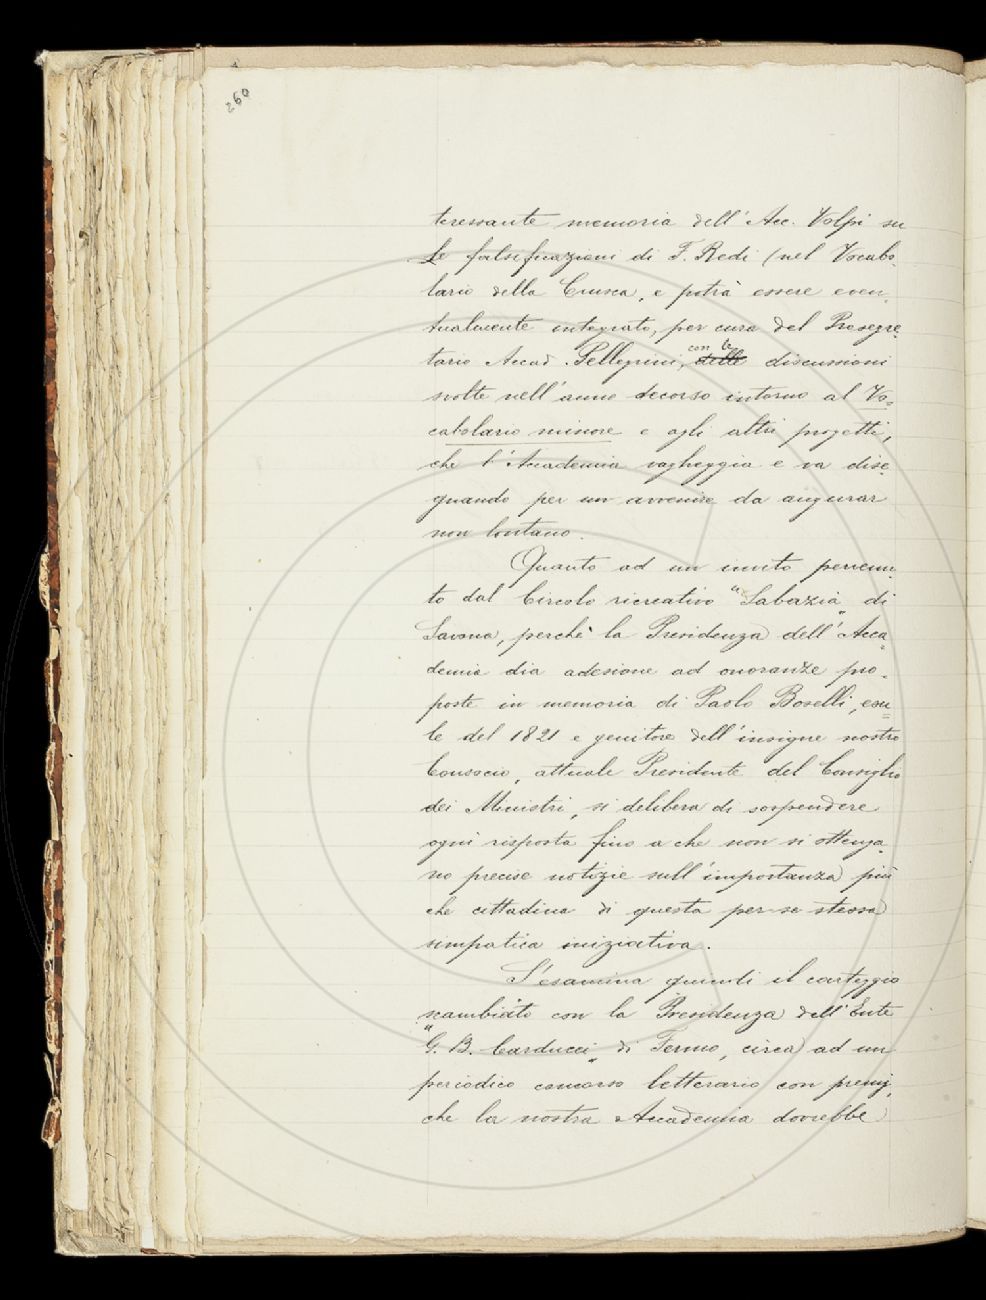 260
teressante memoria dell'Acc. Volpi su
Le falsificazioni di F. Redi (nel Vocabo-
lario della Crusca, e potrà essere even-
tualmente integrato, per cura del Prosegre-
tario Accad. Pellegrini, con le delle discussioni
svolte nell'anno decorso intorno al Vo-
cabolario minore e agli altri progetti,
che l'Accademia vagheggia e va dise-
gnando per un avvenire da augurar
non lontano.
Quanto ad un invito pervenu-
to dal Circolo ricreativo "Sabazia" di
Savona, perchè la Presidenza dell'Acca-
demia dia adesione ad onoranze pro-
poste in memoria di Paolo Boselli, esu-
le del 1821 e genitore dell'insigne nostro
Consocio, attuale Presidente del Consiglio
dei Ministri, si delibera di sospendere
ogni risposta fino a che non si ottenga-
no precise notizie sull'importanza più
che cittadina di questa per se stessa
simpatica iniziativa.
S'esamina quindi il carteggio
scambiato con la Presidenza dell'Ente
"G. B. Carducci" di Fermo, circa ad un
periodico concorso letterario con premj,
che la nostra Accademia dovrebbe